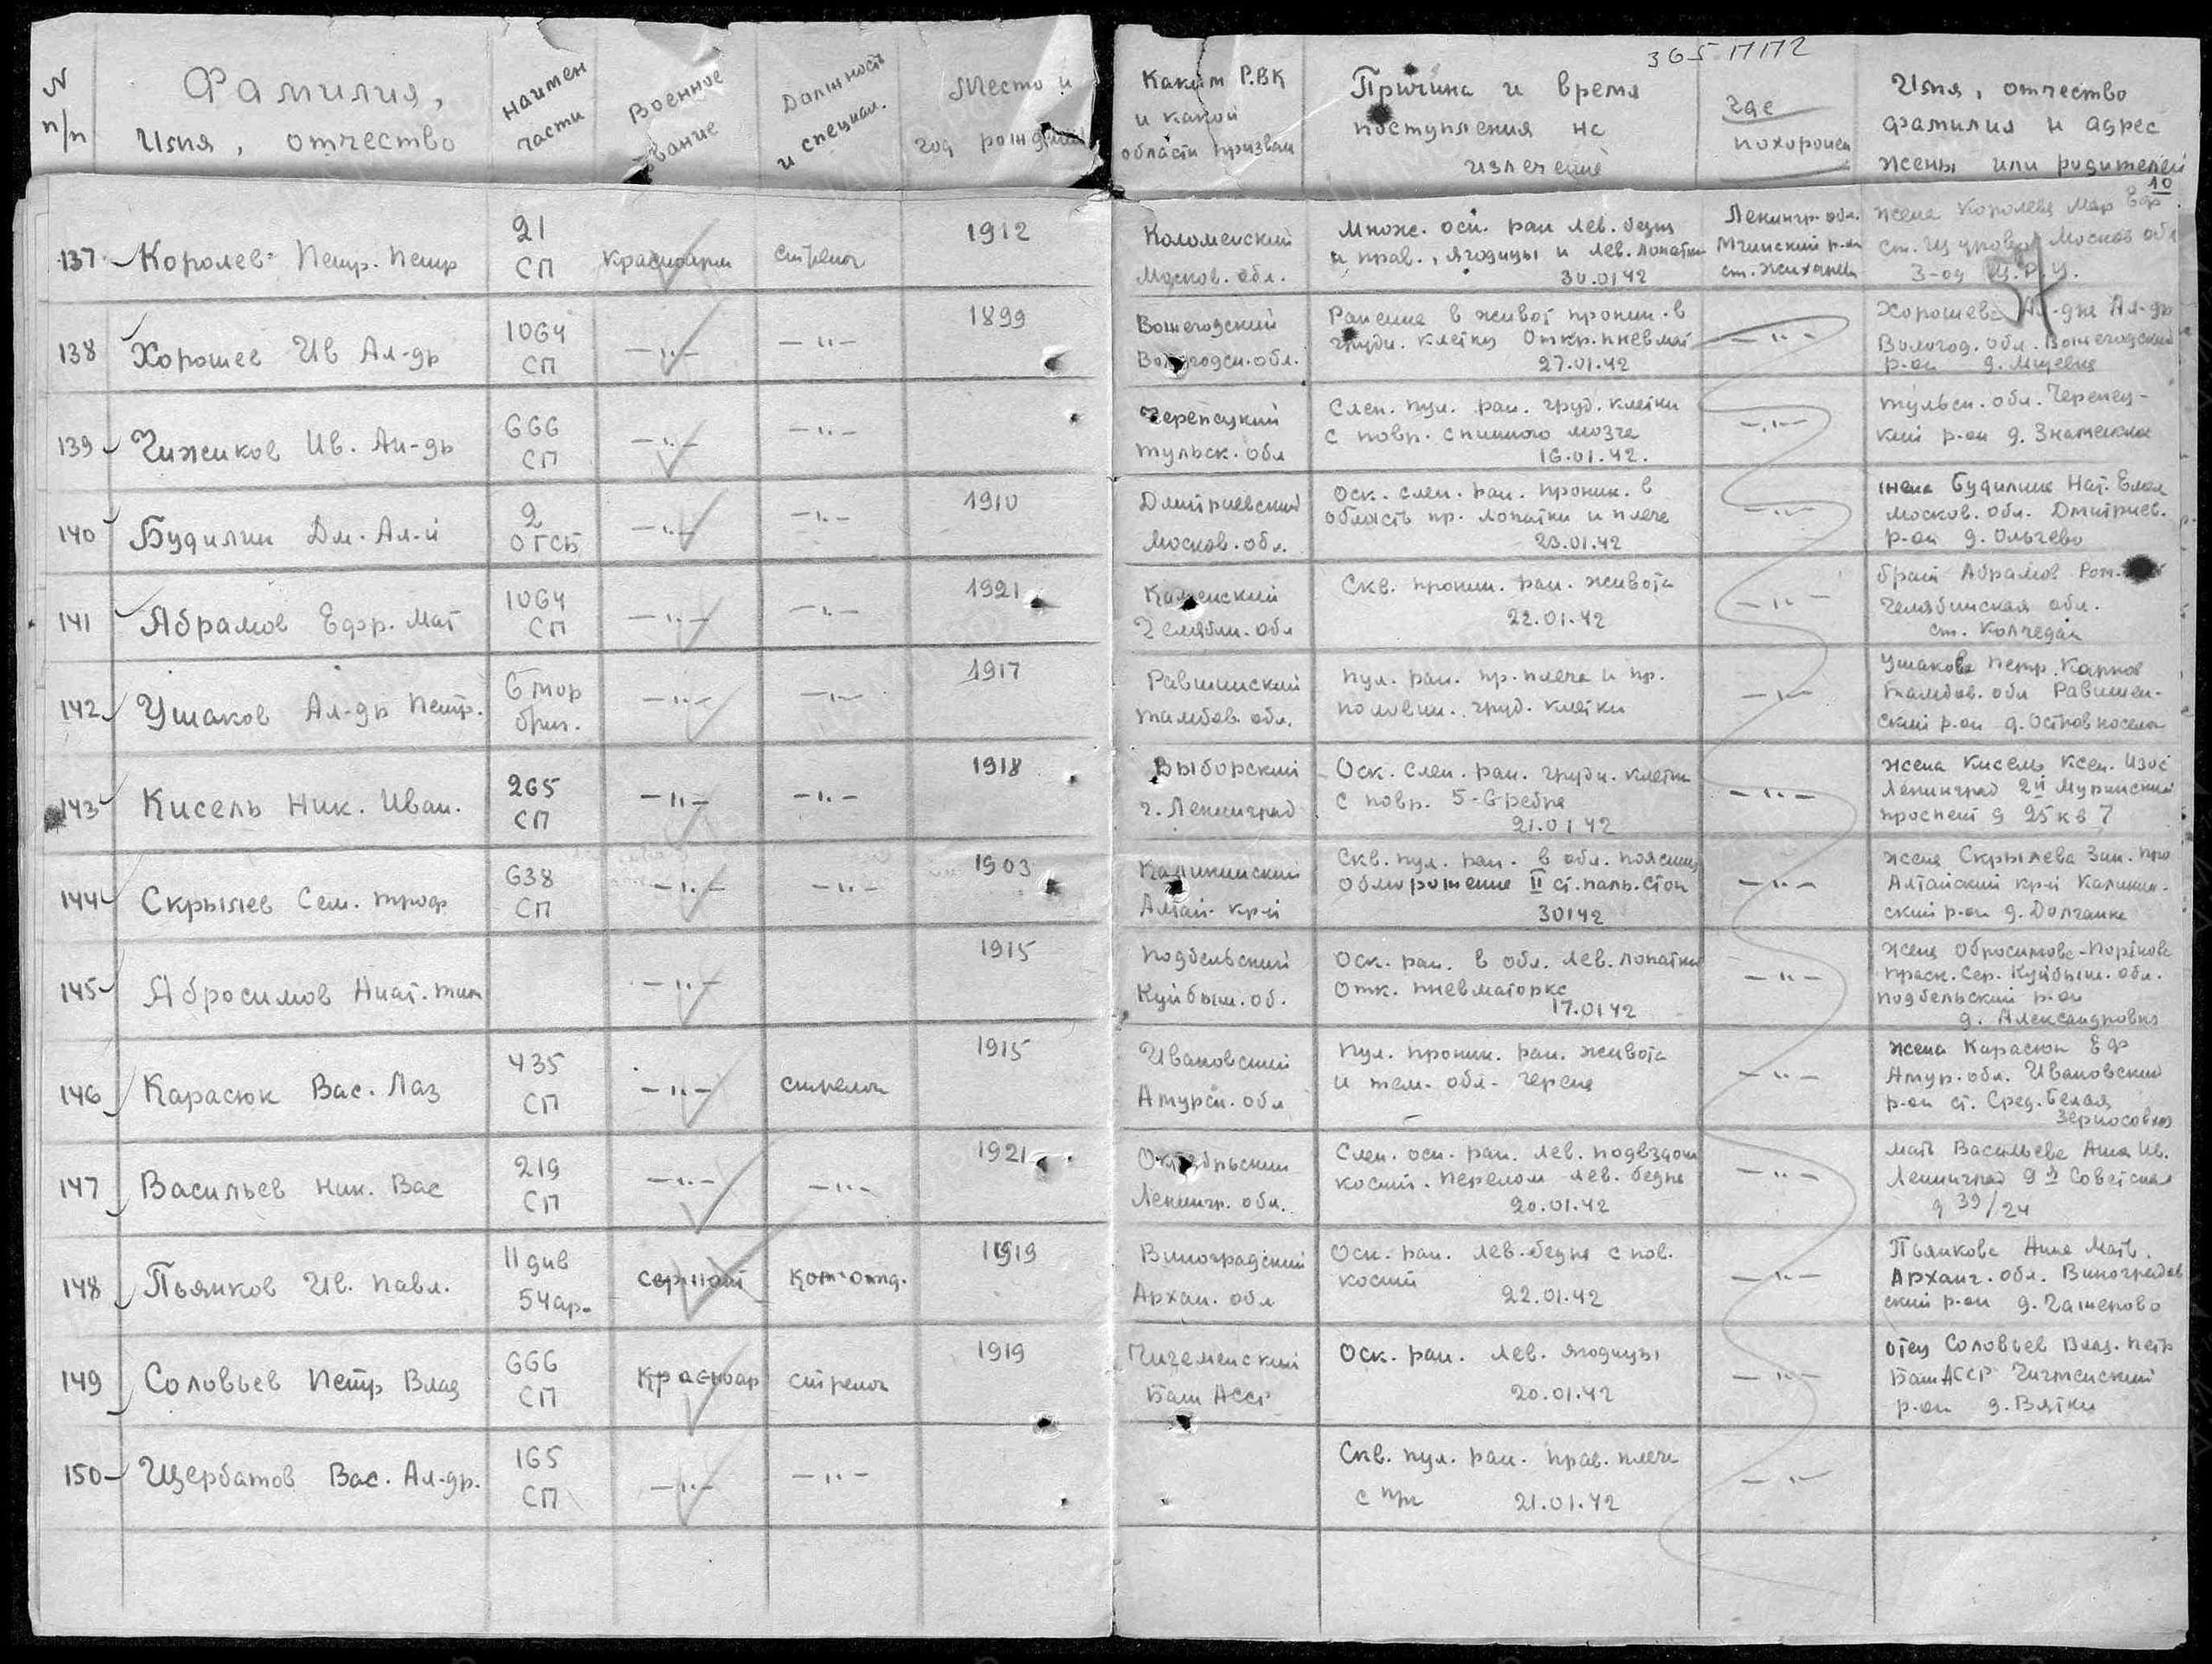 365 ППГ
N п/п
Фамилия, Имя, отчество
Наимен части
Военное звание
Должность и специал.
Место и год рожден
Каким Р.ВК и какой области призван
Причина и время поступления на излечение
где похоронен
Имя, отчество фамилия и адрес жены или родителей
10
137 Королев Петр. Петр
21 СП
красноарм
стрелок
1912
Коломенский Москов. обл.
Множ. оск. ран лев. бедра и прав., ягодицы и лев. лопатки 30.01 42
Ленингр. обл. Мгинский р-он ст. Жихарев
жена Королева Мар Ефр ст. Москов обл
138 Хорошев Ив Ал-др
1064 СП
—"—
—"—
1899
Вожегодский Вологодск. обл.
Ранение в живот проник. в грудн. клетку Откр. пневмат 27.01.42
—"—
Хорошева Ал-дра Ал-др Вологод. обл. Вожегодский р-он д.
139 Чижиков Ив. Ал-др
666 СП
—"—
—"—
Черепецкий Тульск. обл
Слеп. пул. ран. груд. клетки с повр. спинного мозга 16.01.42.
—"—
Тульск. обл. Черепец- кий р-он д. Знаменка
140 Будилин Дм. Ал-й
2 ОГСБ
—"—
—"—
1910
Дмитриевский Москов. обл.
Оск. слеп. ран. проник. в область пр. лопатки и плеча 23.01.42
—"—
жена Будилина Нат. Москов. обл. Дмитриев. р-он д. Ольгево
141 Абрамов Ефр. Мат
1064 СП
—"—
—"—
1921
Каменский Челябин. обл
Скв. проник. ран. живота 22.01.42
—"—
брат Абрамов Ром. Челябинская обл. ст. Колчедан
142 Ушаков Ал-др Петр.
6 мор бриг.
—"—
—"—
1917
Равшинский Тамбов. обл.
Пул. ран. пр. плеча и пр. половин. груд. клетки
—"—
Ушакова Петр. Карпов Тамбов. обл Равшен- ский р-он д.
143 Кисель Ник. Иван.
265 СП
—"—
—"—
1918
Выборский г. Ленинград
Оск. слеп. ран. грудн. клетки с повр. 5-6 ребра 21.01 42
—"—
жена Кисель Ксен. Ленинград 2й Муринский проспект д 25 кв 7
144 Скрылев Сем. Троф
638 СП
—"—
—"—
1903
Калининский Алтай. кр-й
Скв. пул. ран. в обл. поясниц обморожение II ст. паль. стоп 30 1 42
—"—
жена Скрылева Зин. Про Алтайский кр-й Калинин- ский р-он д. Долганка
145 Абросимов Анат. Тим
—"—
1915
Подбельский Куйбыш. об.
Оск. ран. в обл. лев. лопатки Отк. пневматоркс 17.01 42
—"—
жена Обросимова- Праск. Сер. Куйбыш. обл. Подбельский р-он д. Александровка
146 Карасюк Вас. Лаз
435 СП
—"—
стрелок
1915
Ивановский Амурск. обл
Пул. проник. ран. живота и тем. обл. черепа
—"—
жена Карасюк Еф Амур. обл. Ивановский р-он ст. Сред. Белая Зерносовхоз
147 Васильев Ник. Вас
219 СП
—"—
—"—
1921
Октябрьский Ленингр. обл.
Слеп. оск. ран. лев. подвздош кости. перелом лев. бедра 20.01.42
—"—
мать Васильева Анна Ив. Ленинград 9я Советская д 39/24
148 Пьянков Ив. Павл.
11 див 54 ар.
сержант
Ком. отд.
1919
Виноградский Архан. обл
Оск. ран. лев. бедра с пов. костей 22.01.42
—"—
Пьянкова Анна Матв. Арханг. обл. Виноградов ский р-он д.
149 Соловьев Петр Влад
666 СП
Красноар
стрелок
1919
Баш АССР
Оск. ран. лев. ягодицы 20.01.42
—"—
отец Соловьев Влад. Петр Баш АССР р-он д. Вятки
150 Щербатов Вас. Ал-др.
165 СП
—"—
—"—
Скв. пул. ран. прав. плеча с 21.01.42
—"—